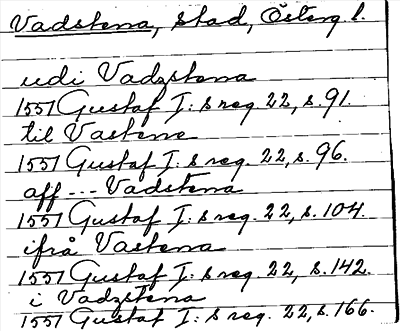 Vadstena, stad, Österg. l.
udi Vadzstena
1557 Gustaf I:s reg. 22, s. 91.
til Vastene
1557 Gustaf I:s reg. 22, s. 96.
aff --- Vadstena
1557 Gustaf I:s reg. 22, s. 104.
ifrå Vastena
1557 Gustaf I:s reg. 22, s. 142.
i Vadzstena
1557 Gustaf I:s reg. 22, s. 166.